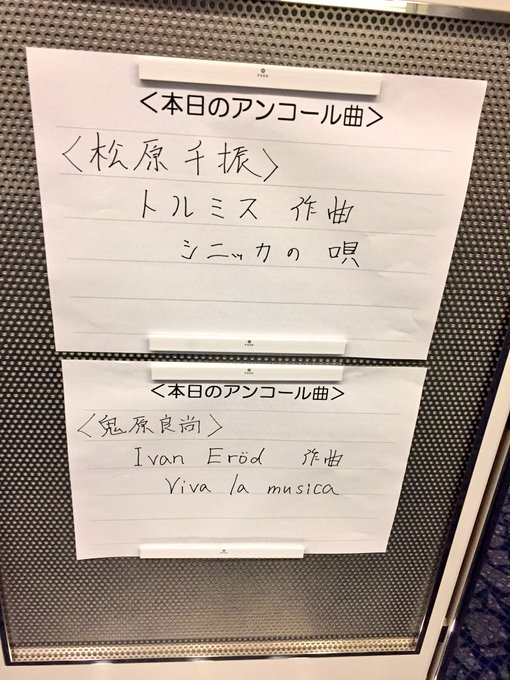 <本日のアンコール曲>
〈松原千振〉
トルミス 作曲
シニッカの 唄
<本日のアンコール曲>
〈鬼原良尚〉
Ivan Eröd 作曲
Viva la musica